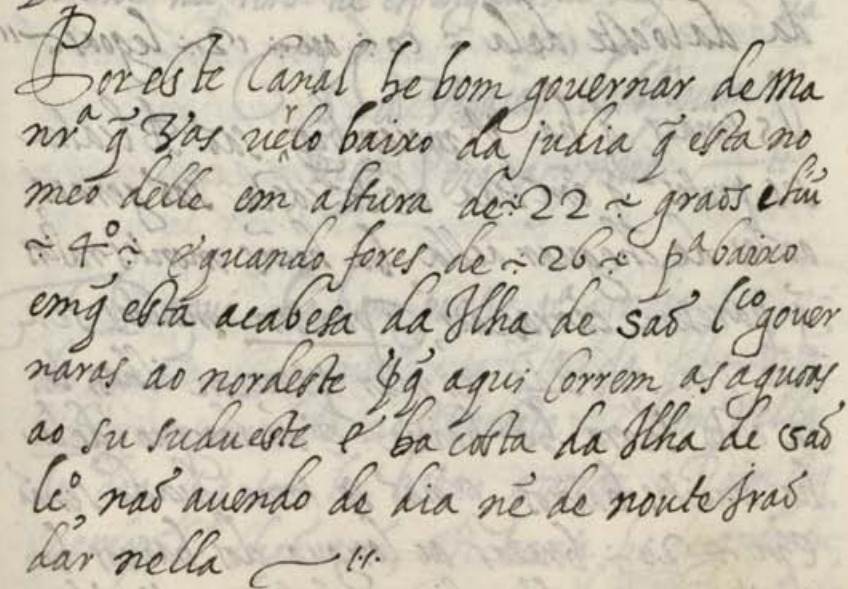 Por este Canal he bom gouernar de Ma
nrª q̃ vas vẽlo baixo da judia q̃ esta no
meo delle em altura de ÷ 22 ÷ graos e hũ
÷ 4º ÷ e quando fores de ÷ 26 ÷ pª baixo
emq̃ está acabesa da Ilha de saõ lᶜᵒ gouer
naras ao nordeste q̃ aqui Correm as aguoas
ao su sudueste e ha costa da Ilha de saõ
lcº naõ auendo de dia nẽ de noute Iraõ
dar nella